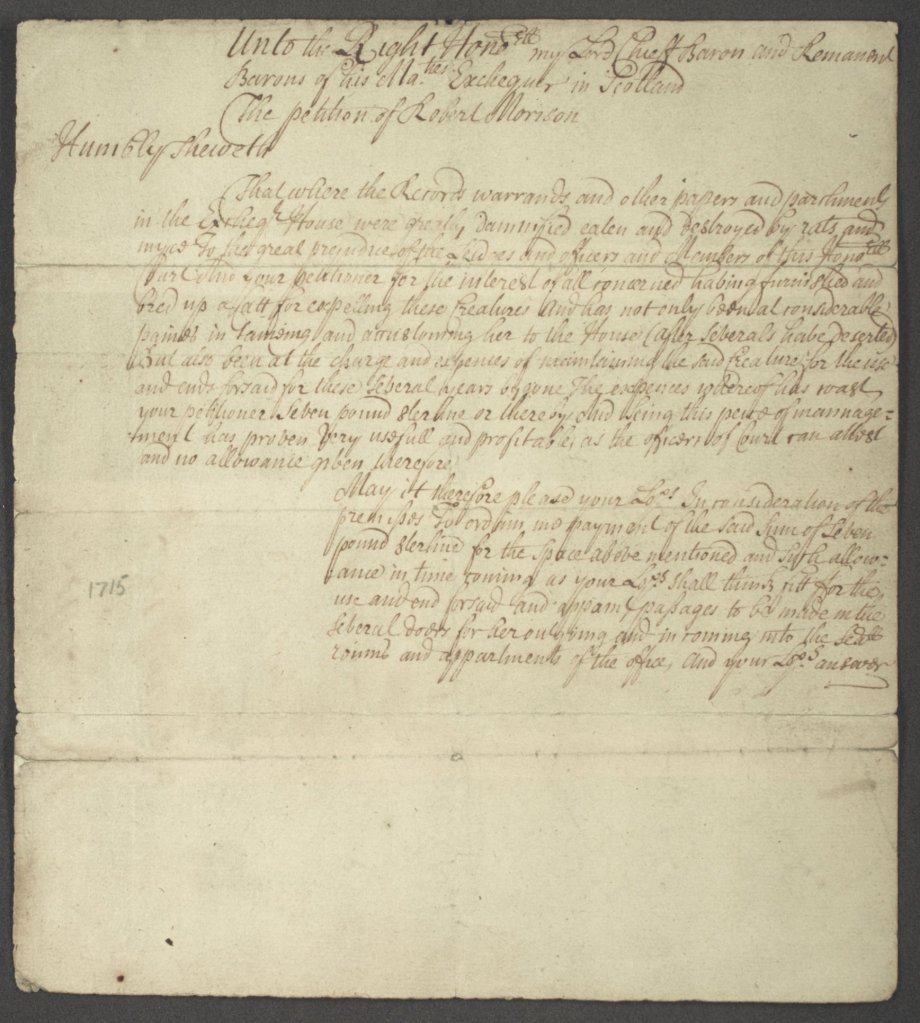 Unto the Right Hono^ble my Lord Chieff Baron and Remanent
Barons of his Ma^ties Exchequer in Scotland
The petition of Robert Morison
Humbly Sheweth
That where the Records warrands and other papers and parchments
in the Excheq^r House were greatly Damnified eaten and destroyed by rats and
myce To the great prejudice of the Leidges and officers and Members of this Hono^ble
Court Who your petitioner for the interest of all concerned having furnished and
bred up a Catt for expelling these Creatures And has not only been at considerable
paines in tameing and accustoming her to the House (after severals have deserted)
But also been at the charge and expenses of maintaining the said Creature for the use
and ends forsaid for these severall years bygone The expences whereof has coast
your petitioner Seven pound sterline or thereby And being this peice of mannage-
ment has proven very usefull and profitable, as the officers of Court can attest
and no allowance given therefore
May it therefore please your Lo^ps In consideration of the
premisses To ordain me payment of the said sum of Seven
pound sterline for the space above mentioned and such allow-
ance in time coming as your Lo^ps shall think fitt for the
use and end forsaid and appoint passages to be made in the
severall doors for her outgoing and in coming into the
roums and appartments of the office, And your Lo^ps answer
1715